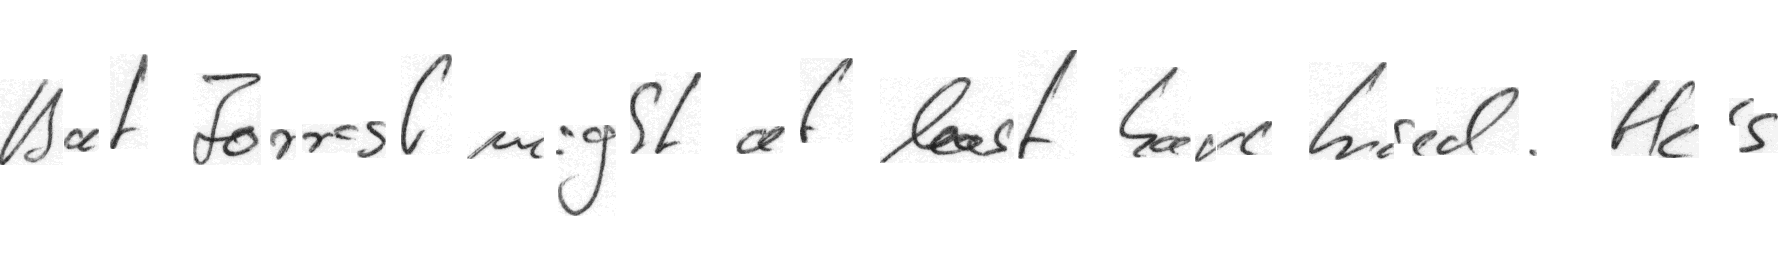 But Forrest might at least have tried. He's